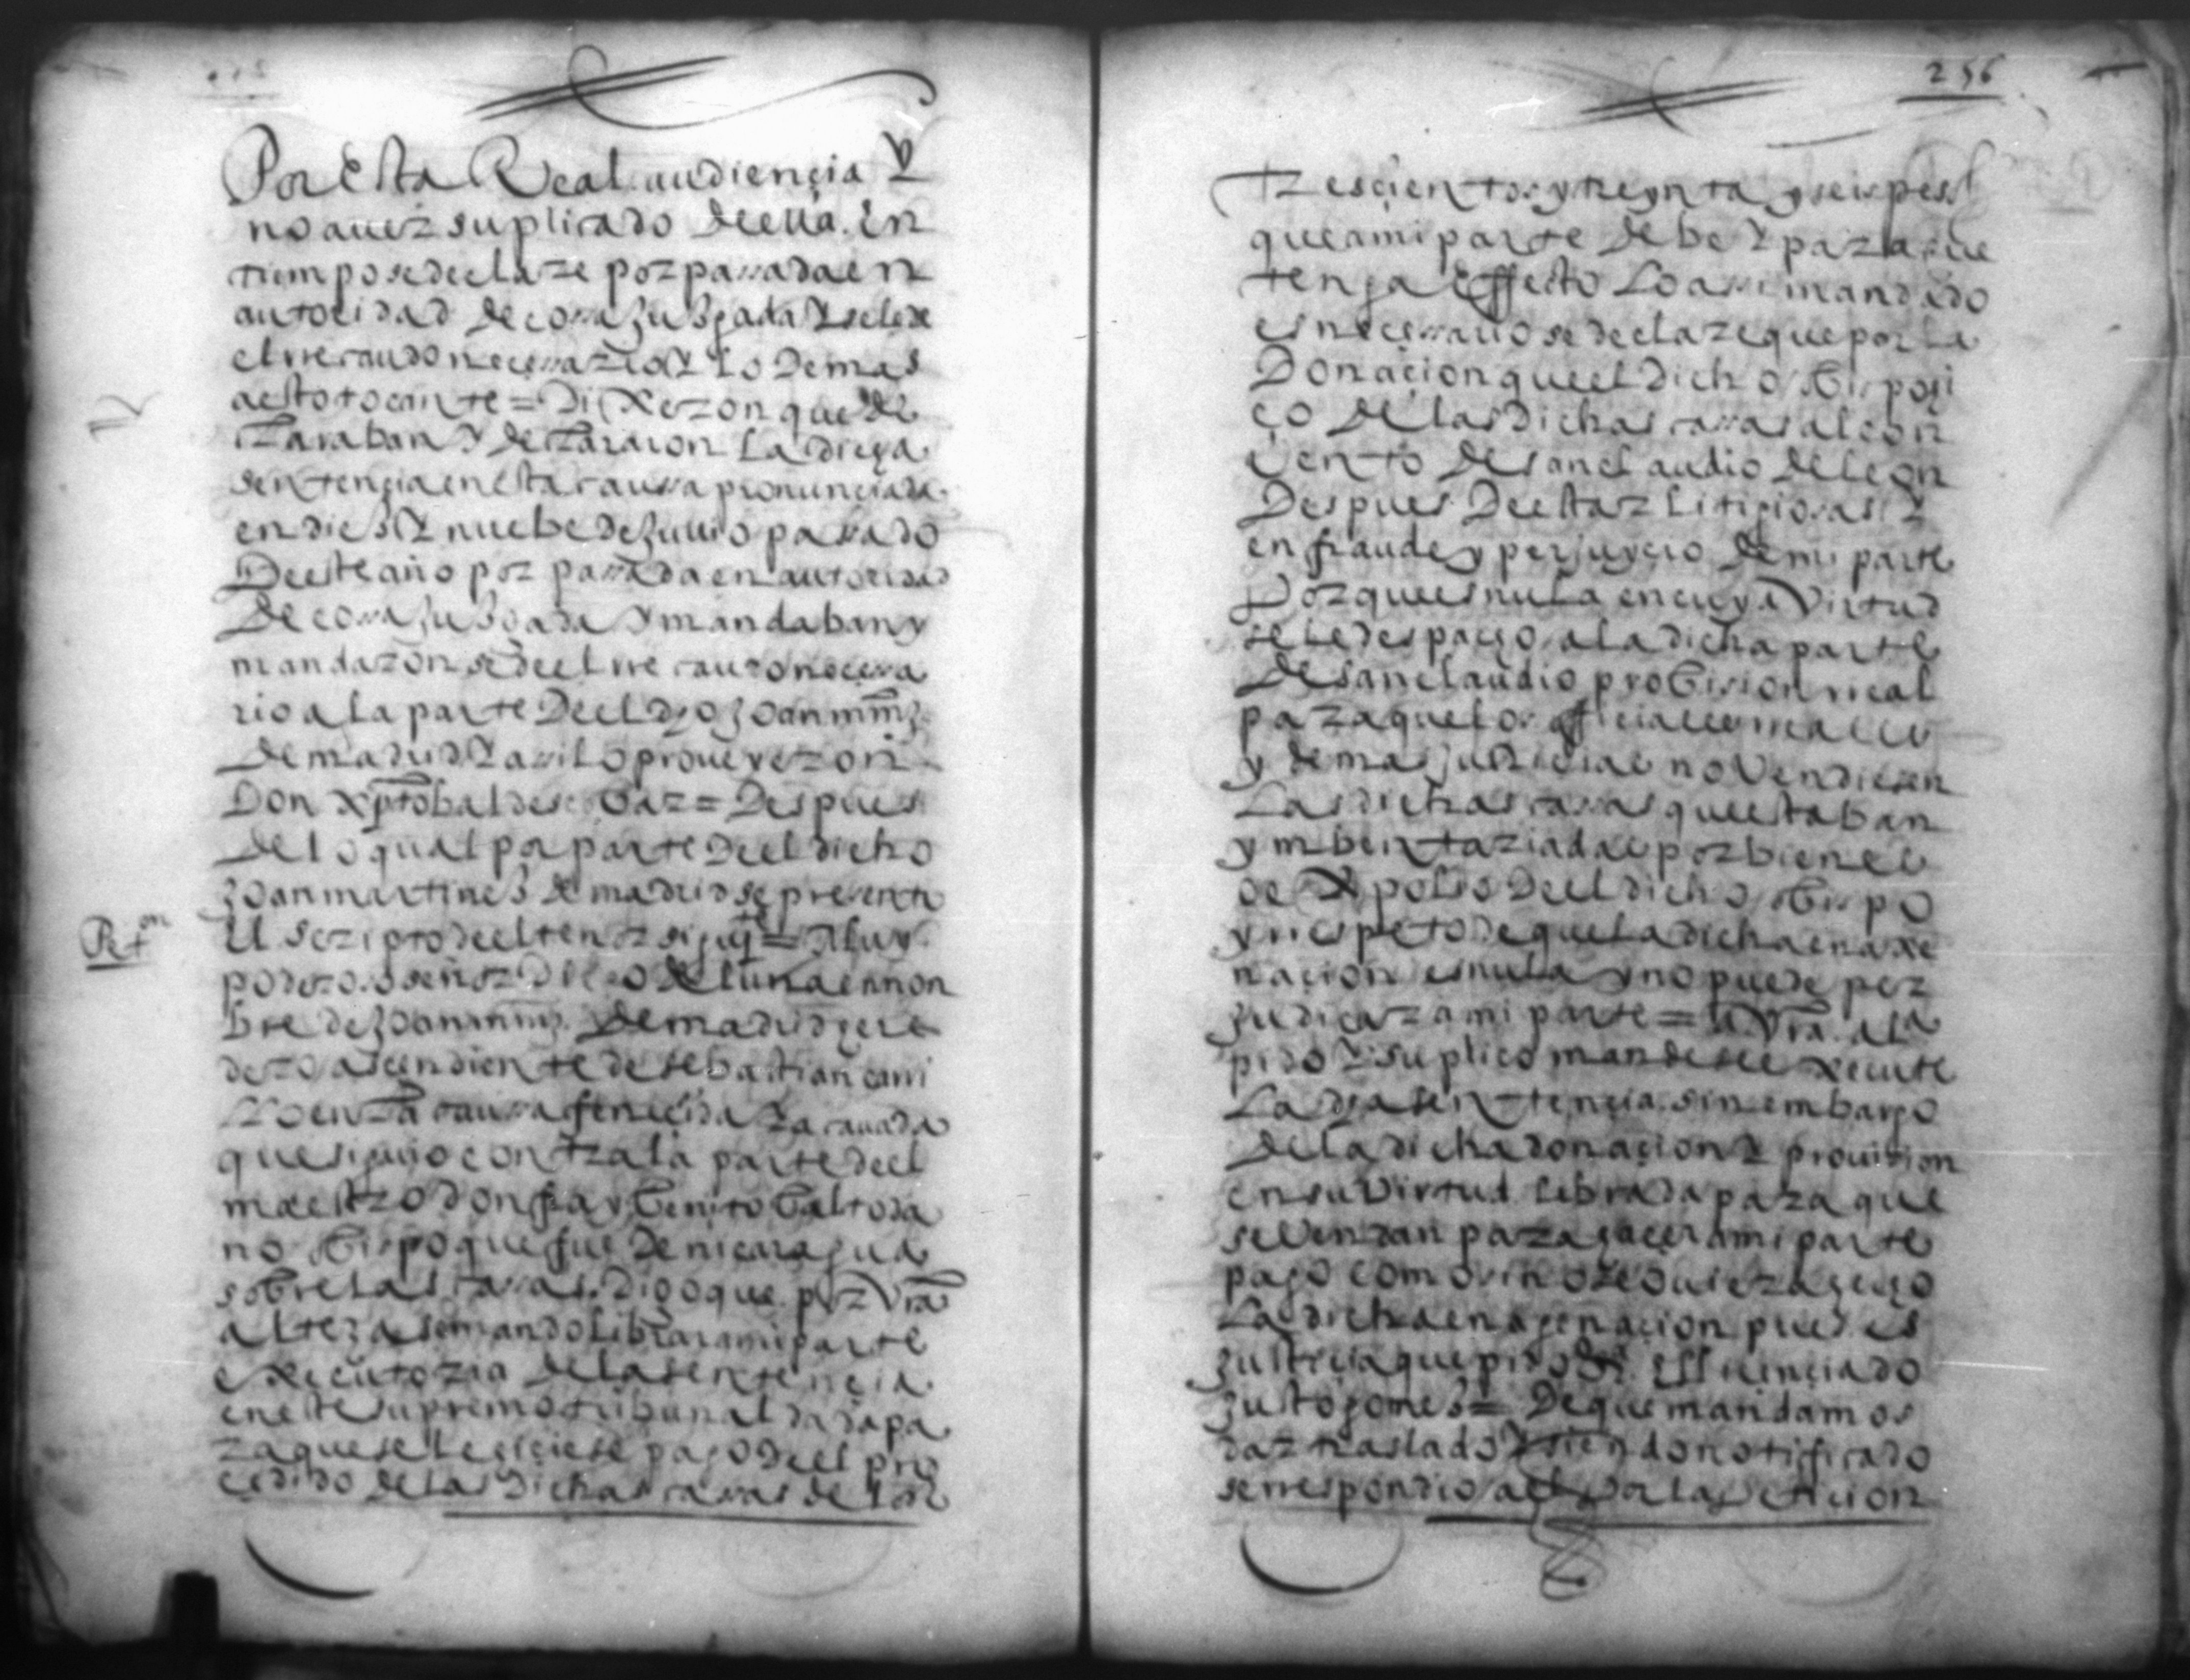 Por esta Real audiençia Y
no auer suplicado deella. En
tiempo se declare por passada en
autoridad de cossa Jusgada Y se le de
el rrecaudo neçessario Y lo demas
a esto tocante = Dixeron que de
claraban Y declararon La dicha
sentençia en esta caussa pronunciada
en dies Y nuebe de Jullio passado
Deeste año por passada en autoridad
De cossa Jusgada Y mandaban y
mandaron se dee el rrecaudo neçessa
rio a la parte Deel dho Joan mrnz
De madrid Y assi lo proueyeron
Don xptobal de Despues
De lo qual por parte Deel dicho
Joan martines de madrid se pressento
Un escripto deel tenor siguiẽte = Muy
poderoso señor Diego de luna en nom
bre de Joan mrnz De madrid here
dero asçendiente de sebastian cani
en la caussa feneçida Y acauada
que siguio contra la parte deel
maestro don fray Benito Baltoda
no obispo que fue de nicaragua
sobre las cassas. Digo que. por Vra
alteza se mando librar a mi parte
executoria de la sentençia
en este supremo tribunal dada pa
ra que se le hiçiese pago deel pro
cedido de las Dichas cassas de los
Pet.on
256
trescientos y treynta y seis pesos
que a mi parte debe Y para que
tenga Effecto Lo assi mandado
es neçessario se declare que por la
Donaçion que el Dicho obispo hi
ço de las Dichas cassas al con
vento de san claudio de leon
Despues De estar litigiosas Y
en fraude y perjuycio de mi parte
Por que es nula en cuya Virtud
se le despacho a la dicha parte
de san claudio probission rreal
para que los officiales rreales
y demas justiciae no Vendiesen
Las dichas cassas que estaban
ymbentariadas por bienes
de expolio Deel dicho obispo
y rrespeto de que la dicha enaxe
naçion es nula y no puede per
judicar a mi parte = A Vra. alª
pido Y suplico mande se execute
La dha sentençia sin embargo
de la dicha donaçion Y prouission
en su Virtud librada para que
se Vendan para haçer a mi parte
pago como si no se ouiera hecho
La dicha enagenaçion pues es
Justiçia que pido El liçençiado
Justo gomes = De que mandamos
dar traslado Y siendo notificado
se rrespondio a el por la peticion